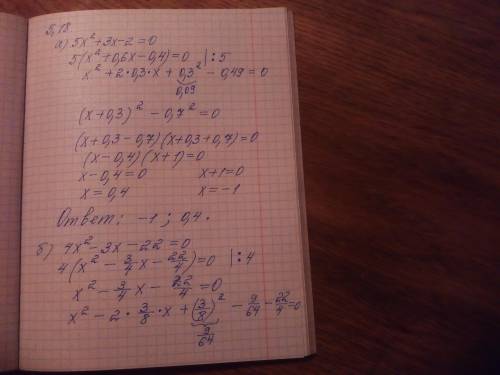 5.18.
а) 5x² + 3x - 2 = 0
5(x² + 0,6x - 0,4) = 0 |: 5
x² + 2·0,3·x + 0,3² - 0,49 = 0
0,09
(x + 0,3)² - 0,7² = 0
(x + 0,3 - 0,7)(x + 0,3 + 0,7) = 0
(x - 0,4)(x + 1) = 0
x - 0,4 = 0 x + 1 = 0
x = 0,4 x = -1
Ответ: -1 ; 0,4.
б) 4x² - 3x - 22 = 0
4(x² - 3/4 x - 22/4) = 0 |: 4
x² - 3/4 x - 22/4 = 0
x² - 2 · 3/8 · x + (3/8)² - 9/64 - 22/4 = 0
9/64